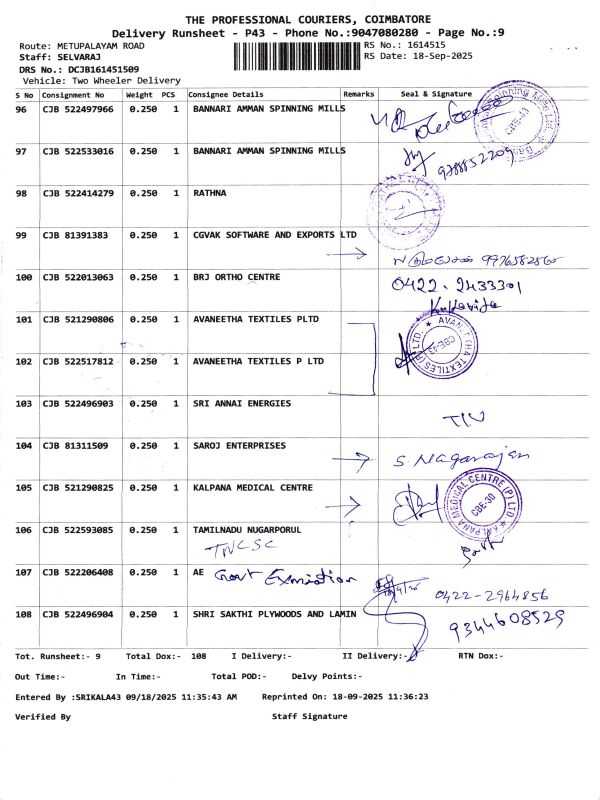 THE PROFESSIONAL COURIERS, COIMBATORE
Delivery Runsheet - P43 - Phone No.:9047080280 - Page No.:9
Route: METUPALAYAM ROAD
RS No.: 1614515
Staff: SELVARAJ
RS Date: 18-Sep-2025
DRS No.: DCJB161451509
Vehicle: Two Wheeler Delivery
S No Consignment No Weight PCS Consignee Details Remarks Seal & Signature
96 CJB 522497966 0.250 1 BANNARI AMMAN SPINNING MILLS
CBE-43
97 CJB 522533016 0.250 1 BANNARI AMMAN SPINNING MILLS
9788852209
98 CJB 522414279 0.250 1 RATHNA
99 CJB 81391383 0.250 1 CGVAK SOFTWARE AND EXPORTS LTD
100 CJB 522013063 0.250 1 BRJ ORTHO CENTRE 0422-2433301
101 CJB 521290806 0.250 1 AVANEETHA TEXTILES PLTD
AVANEETHA TEXTILES (P) LTD. CBE-43
102 CJB 522517812 0.250 1 AVANEETHA TEXTILES P LTD
103 CJB 522496903 0.250 1 SRI ANNAI ENERGIES
104 CJB 81311509 0.250 1 SAROJ ENTERPRISES S. Nagarajan
105 CJB 521290825 0.250 1 KALPANA MEDICAL CENTRE
KALPANA MEDICAL CENTRE (P) LTD CBE-30
106 CJB 522593085 0.250 1 TAMILNADU NUGARPORUL
TNCSC
107 CJB 522206408 0.250 1 AE Govt
0422-2964856
108 CJB 522496904 0.250 1 SHRI SAKTHI PLYWOODS AND LAMIN 9344608529
Tot. Runsheet:- 9 Total Dox:- 108 I Delivery:- II Delivery:- RTN Dox:-
Out Time:- In Time:- Total POD:- Delvy Points:-
Entered By :SRIKALA43 09/18/2025 11:35:43 AM Reprinted On: 18-09-2025 11:36:23
Verified By Staff Signature